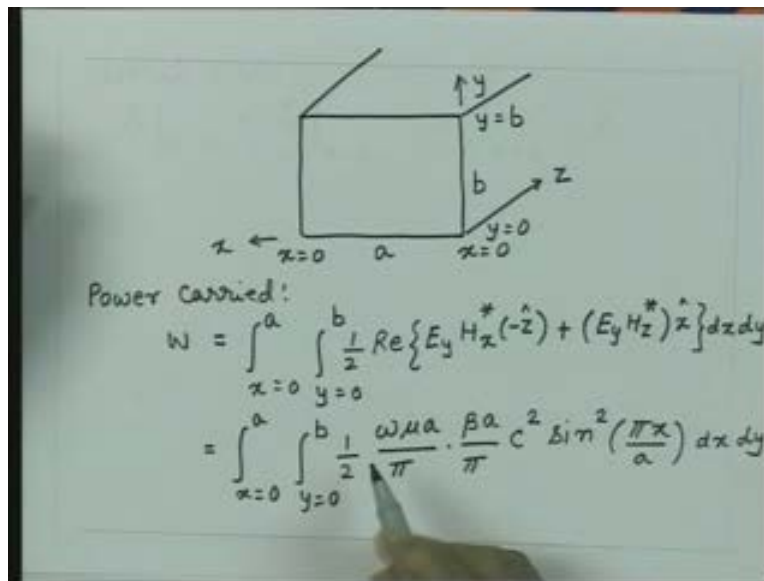 ↑ y
y = b
b
z
y = 0
x ← x = 0 a x = 0
Power Carried:
W = ∫_{x=0}^{a} ∫_{y=0}^{b} 1/2 Re{E_y H_x^*(-ẑ) + (E_y H_z^*) x̂} dx dy
= ∫_{x=0}^{a} ∫_{y=0}^{b} 1/2 ωμa/π · βa/π C² sin²(πx/a) dx dy